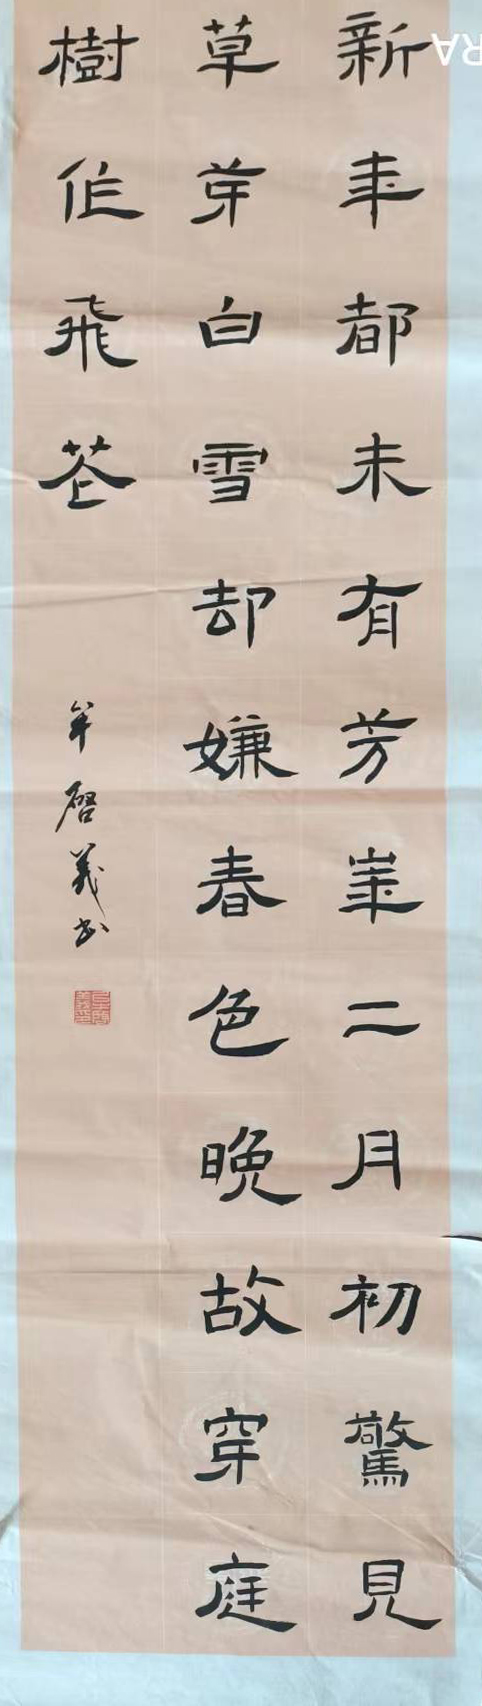 新年都未有芳華二月初驚見
草芽白雪却嫌春色晚故穿庭
樹作飛花
年啓義书
RA